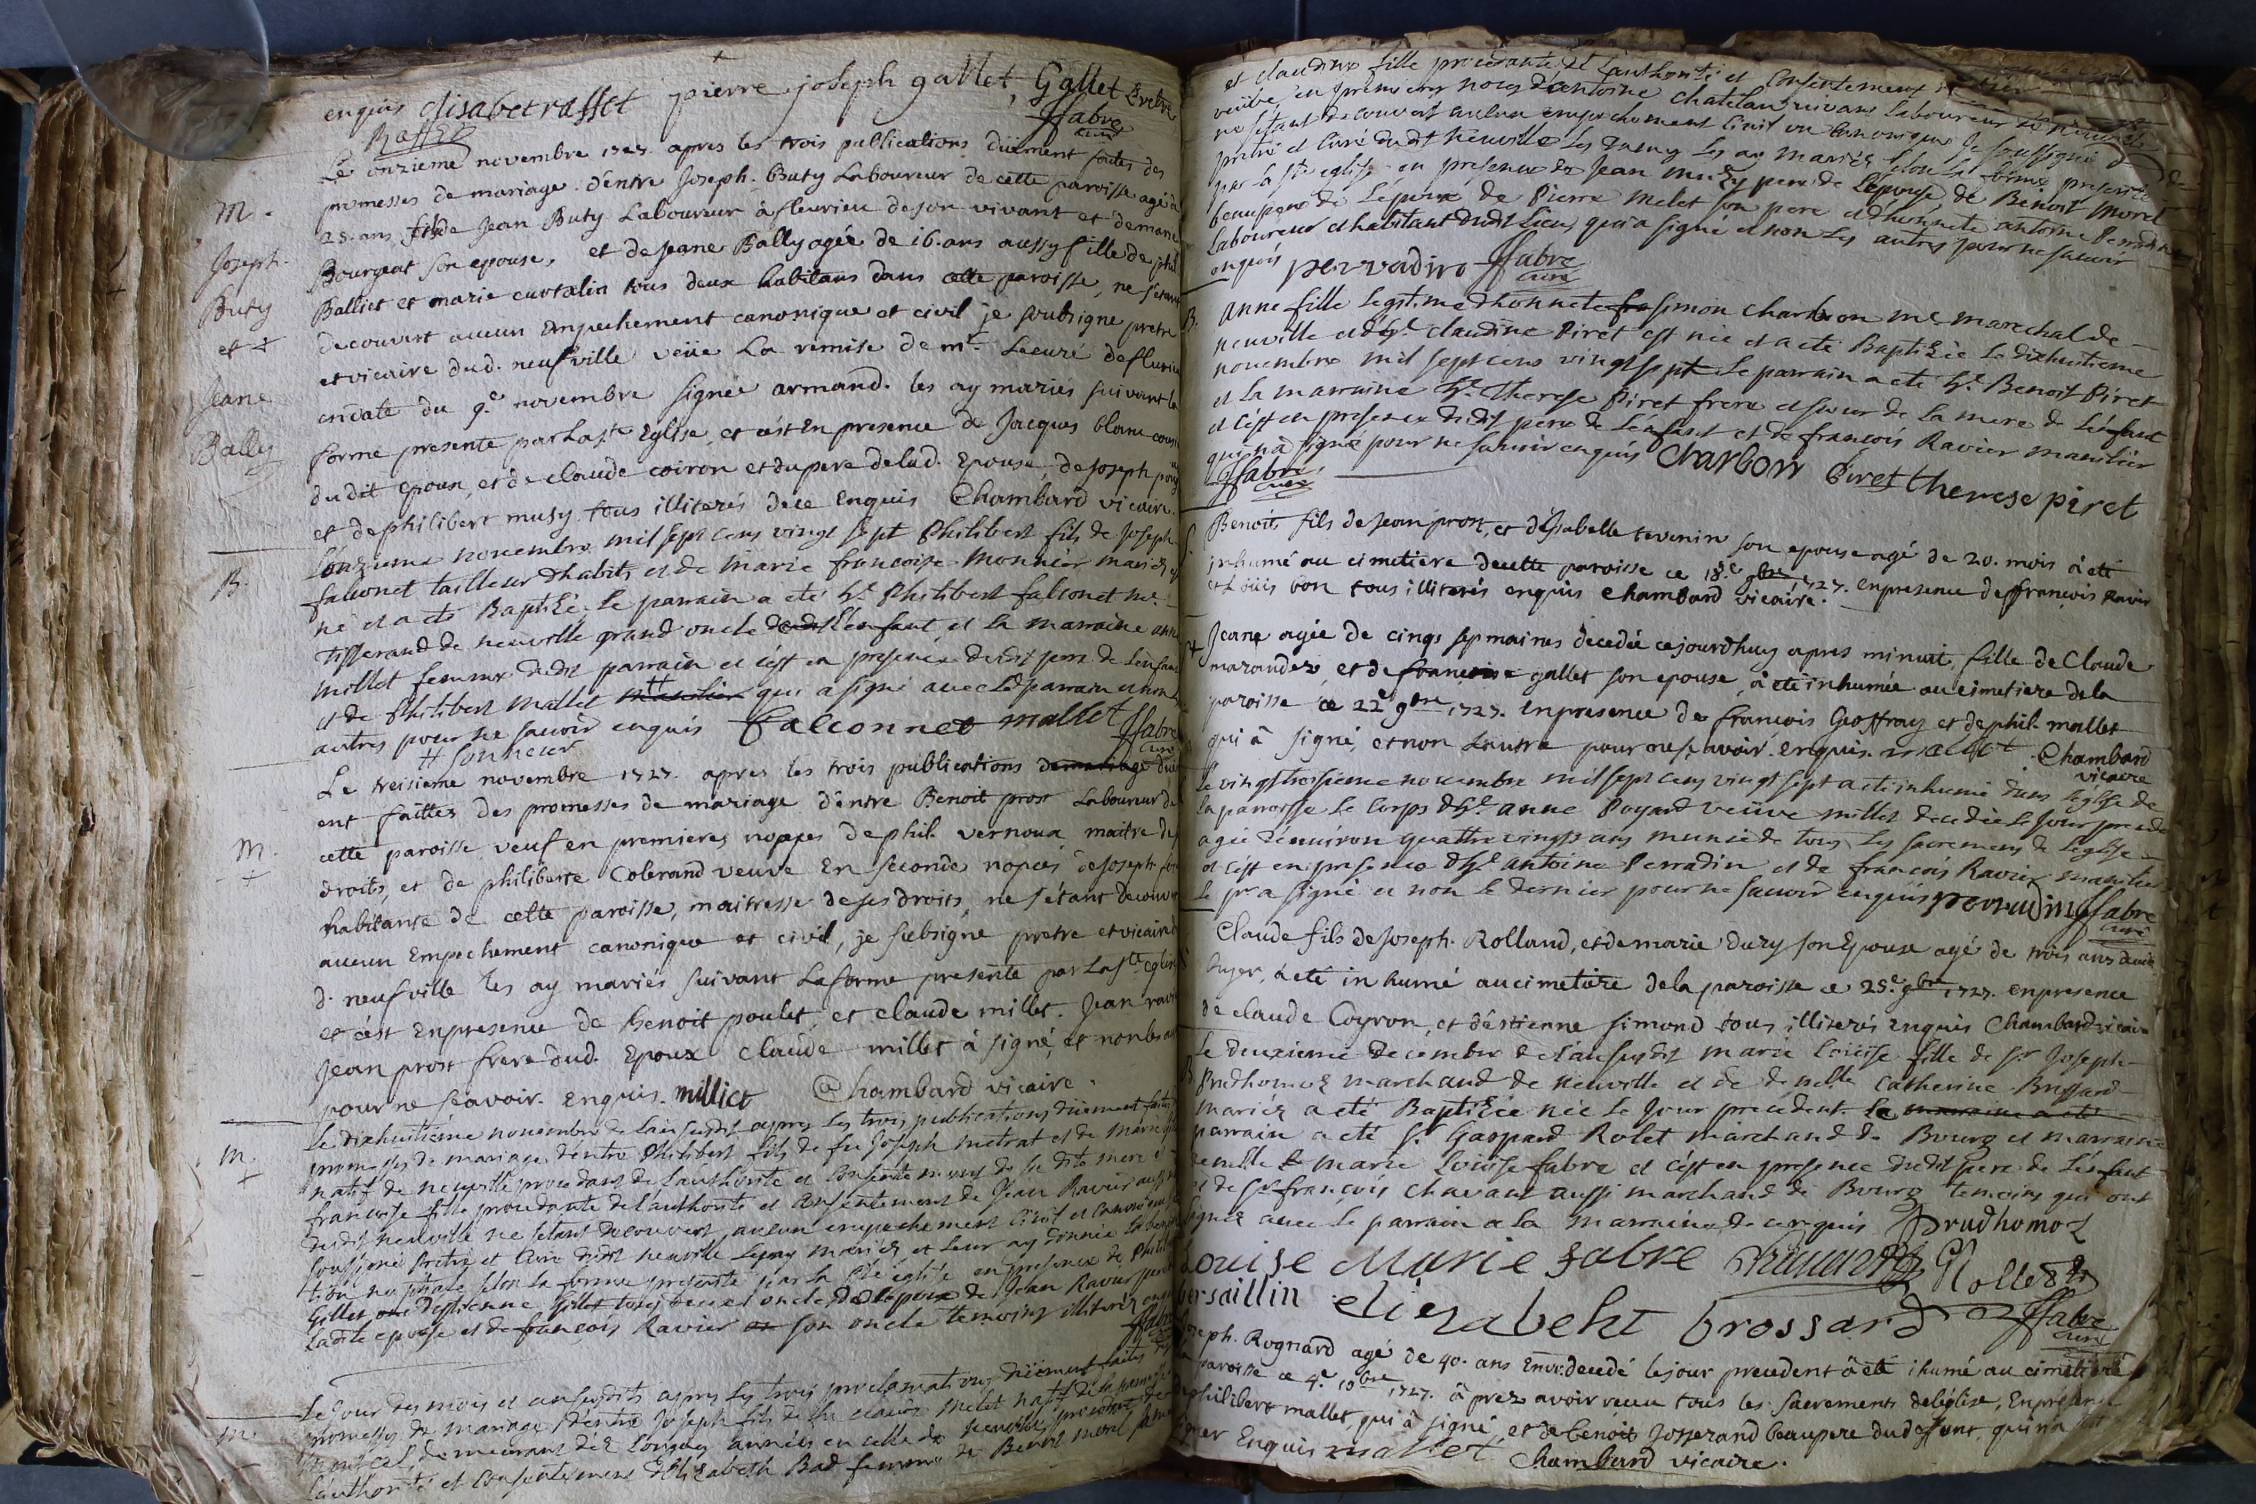 enquis elisabet rasset pierre joseph gallet, Gallet
Raffet ffabre
curé
Le onzieme novembre 1727. apres les trois publications düement faites des
promesses de mariage d'entre Joseph Buty Laboureur de cette paroisse agé de
25. ans fils de Jean Buty Laboureur à fleurieu de son vivant et de
Bourgeat son epouse, et de Jeane Bally agée de 16. ans aussy fille de phil.
Balliet et marie curtalin tous deux habitans dans cette paroisse, ne s'etant
decouvert aucun Empechement canonique et civil je soubsigne pretre
et vicaire dud. neufville veüe La remise de mr. Le curé de flurieu
en date du 9.e novembre signée armand. les ay mariés suivant la
forme presente par La ste Eglise, et c'est En presence de Jacques blanc
dudit epoux, et de claude coiron et du pere de lad. Epouse, de joseph
et de philibert musy tous illiterés de ce Enquis Chambard vicaire.
m.
Joseph
Buty
et +
Jeane
Bally
B.
L'onzieme novembre mil sept cens vingt sept Philibert fils de Joseph
falconet tailleur d'habits et de Marie francoise Monnier mariés
né et a eté Baptizé le parrain a eté Sr. Philibert falconet me.
Tisserand de neuville grand oncle de l'enfant, et la marraine anne
millet femme dudit parrain et c'est en presence dudit pere de l'enfant
et de Philibert Mallet # qui a signé avec led parrain et non les
autres pour ne savoir enquis falconnet mallet ffabre
# sonneur curé
m.
+
Le treisieme novembre 1727. apres les trois publications
ent faittes des promesses de mariage d'entre Benoit prost Laboureur de
cette paroisse veuf en premieres nopces de phil. vernoux maitre de ses
droits, et de philiberte Coberand veuve En seconde nopces de Joseph
habitante de cette paroisse, maitresse de ses droits, ne s'étant decouvert
aucun Empechement canonique et civil, je subsigne pretre et vicaire
d. neufville les ay mariés suivant La forme presente par La ste Eglise
et c'est En presence de Benoit poulet, et claude millet. Jean
Jean prost frere dud. Epoux claude millet à signé, et non les
pour ne sçavoir. Enquis. milliet Chambard vicaire.
m.
+
Le dixhuitième novembre de l'an susdit apres les trois publications düement faites
promesses de mariage d'entre Philibert fils de feu Joseph metrat et de Marie
natif de neuville procedant de l'authorité et consentement de sa dite mere d'
francoise fille procedante de l'authorité et consentement de Jean Ravier aussi
dudit neuville ne s'etant decouvert aucun empechement civil et canonique
soussigné Pretre et curé dudit neuville les ay mariés et leur ay donnée la
tion nuptiale selon la forme presente par la Ste eglise en presence de Philibert
Gillet d'estienne Gillet tous deux oncle de l'epoux de Jean Ravier pere de
ladite epouse et de francois Ravier son oncle temoins illiterés
ffabre
m.
Le jour des mois et an susdits apres les trois proclamations düement faites
promesses de mariage d'entre Joseph fils de feu claude melet natif de la paroisse
demeurant dès longues années en celle de neuville procedant de
l'authorité et consentement d'Elizabeth Bad femme de Benoit morel
et claudine fille procedante de l'authorité et consentement
veuve en premieres noces d'antoine chatelan vivant Laboureur
ne s'etant decouvert aucun empechement civil ou canonique Je soussigné
pretre et curé dudit neuville les ay mariés selon la forme presente
par la ste eglise en presence de Jean pere de l'epouse, de Benoit morel
beaupere de l'epoux de Pierre Melet son pere et d'honnete antoine Perradin
Laboureur et habitant dudit Lieu, qui a signé et non les autres pour ne savoir
enquis perradin ffabre
curé
B.
anne fille legitime d'honnete Simon charbon me marechal de
neuville et de claudine Piret est née et a eté Baptizée le dixhuitieme
novembre mil sept cens vingt sept le parrain a eté Sr. Benoit Piret
et la marraine Therese Piret frere et soeur de la mere de l'enfant
et c'est en presence dudit pere de l'enfant et de francois Ravier manilier
qui n'a signé pour ne savoir enquis Charbon Piret therese piret
ffabre
curé
Benoit fils de Jean prost, et d'ysabelle tevenin son epouse agé de 20. mois à eté
inhumé au cimetiere de cette paroisse ce 18.e 9bre 1727. en presence de ffrançois Ravier
et Loüis bon tous illiterés enquis Chambard vicaire.
Jeane agée de cinqs sepmaines decedée cejourdhuy apres minuit, fille de Claude
marandez, et de francoise gallet son epouse, à eté inhumée au cimetiere de la
paroisse ce 22e 9bre 1727. En presence de françois Geoffray et de phil. mallet
qui à signé, et non Lautre pour ne sçavoir. enquis. mallet Chambard
vicaire
Le vingt troisieme novembre mil sept cens vingt sept a eté inhumé dans l'église de
la paroisse le corps d'hte. anne Poyard veüve millet decedée le jour precedent
agée d'environ quattre vingts ans munie de tous les sacremens de l'église
et c'est en presence d'hte antoine Perradin et de francois Ravier manilier
le pr a signé et non le dernier pour ne savoir enquis perradin ffabre
curé
Claude fils de Joseph. Rolland, et de marie Dury son Epouse agé de trois ans
à eté inhumé au cimetiere de la paroisse ce 25.e 9bre 1727. en presence
de claude Coyron, et d'éstienne simond tous illiterés Enquis Chambard vicaire
Le deuxieme decembre de l'an susdit marie loüise fille de Sr Joseph
Prudhomoz marchand de neuville et de demelle catherine Brossard
mariés a eté Baptizée née le jour precedent. la marraine a eté
parrain a eté Sr Gaspard Rolet marchand de Bourg et marraine
demelle marie loüise fabre et c'est en presence dudit pere de l'enfant
et de Sr francois chavant aussi marchand de Bourg temoins qui ont
signez avec le parrain et la marraine de ce enquis Prudhomoz
Louise Marie fabre Chavant Rollet
versaillin elizabeht brossard ffabre
curé
Joseph. Rognard agé de 40. ans Envir. decedé le jour precedent à eté ihumé au cimetiere
paroisse ce 4.e 10bre 1727. à prez avoir receu tous les sacrements de l'église, En presence
philibert mallet, qui à signé, et de benoit Josserand beaupere du deffunt, qui n'a
signer Enquis mallet Chambard vicaire.